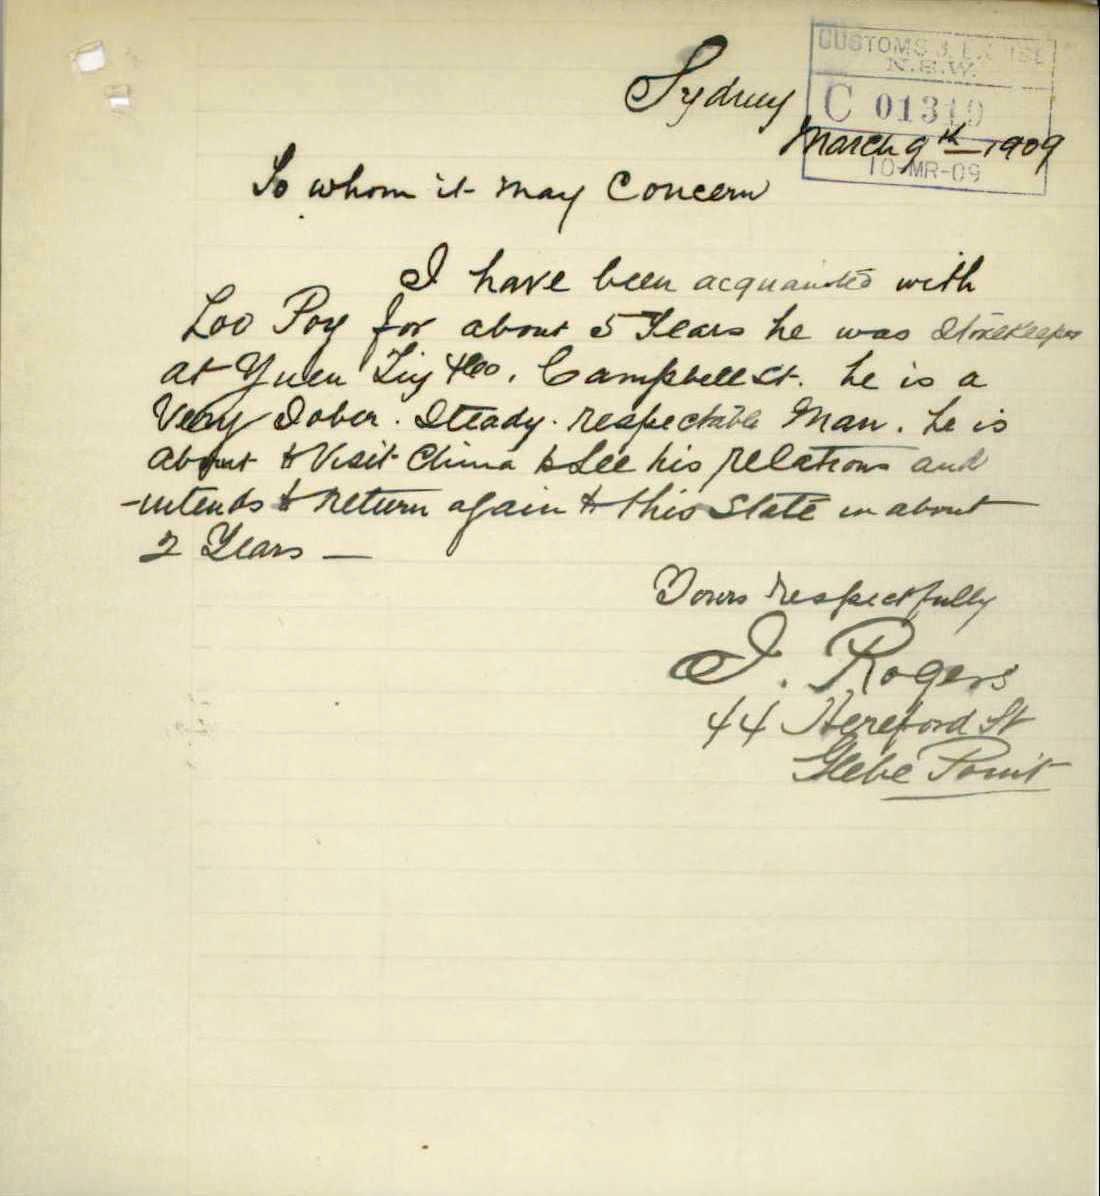 CUSTOMS & EXCISE
N.S.W.
C 01319
10-MR-09
Sydney
March 9th 1909
To whom it may Concern
I have been acquainted with
Loo Poy for about 5 Years he was Storekeeper
at Yuen Tiy & Co. Campbell St. he is a
Very Sober. Steady. respectable Man. he is
about to Visit China to See his relations and
intends to return again to this State in about
2 Years —
Yours respectfully
J. Rogers
44 Hereford St
Glebe Point